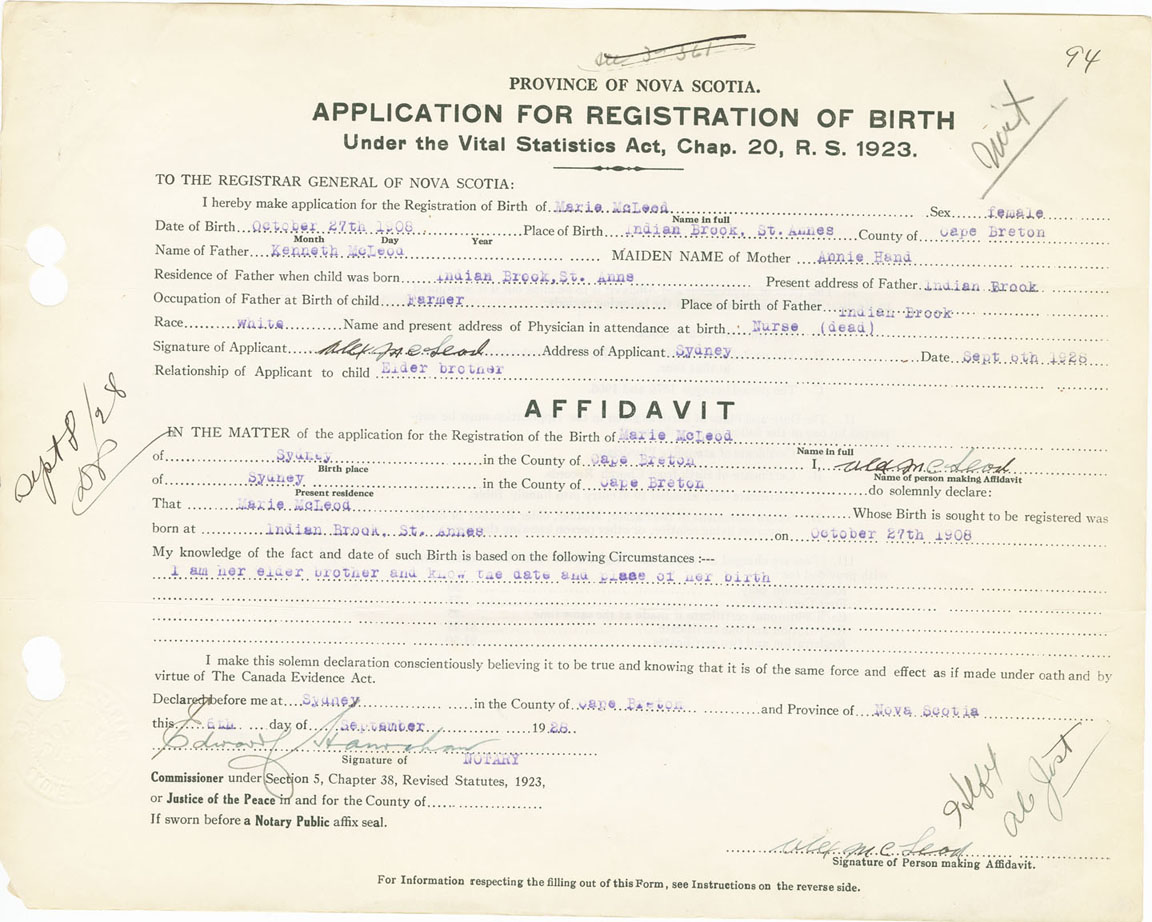 94
PROVINCE OF NOVA SCOTIA.
APPLICATION FOR REGISTRATION OF BIRTH
Under the Vital Statistics Act, Chap. 20, R. S. 1923.
TO THE REGISTRAR GENERAL OF NOVA SCOTIA:
I hereby make application for the Registration of Birth of Marie McLeod Sex female
Name in full
Date of Birth October 27th 1908 Place of Birth Indian Brook, St.Annes County of Cape Breton
Month Day Year
Name of Father Kenneth McLeod MAIDEN NAME of Mother Annie Hand
Residence of Father when child was born Indian Brook,St. Anns Present address of Father Indian Brook
Occupation of Father at Birth of child Farmer Place of birth of Father Indian Brook
Race White Name and present address of Physician in attendance at birth Nurse (dead)
Signature of Applicant Alex McLeod Address of Applicant Sydney Date Sept 6th 1928
Relationship of Applicant to child Elder brother
Sept 8/28
AFFIDAVIT
IN THE MATTER of the application for the Registration of the Birth of Marie McLeod
Name in full
of Sydney in the County of Cape Breton I, Alex McLeod
Birth place Name of person making Affidavit
of Sydney in the County of Cape Breton do solemnly declare:
Present residence
That Marie McLeod Whose Birth is sought to be registered was
born at Indian Brook, St. Annes on October 27th 1908
My knowledge of the fact and date of such Birth is based on the following Circumstances :---
I am her elder brother and know the date and place of her birth
I make this solemn declaration conscientiously believing it to be true and knowing that it is of the same force and effect as if made under oath and by
virtue of The Canada Evidence Act.
Declared before me at Sydney in the County of Cape Breton and Province of Nova Scotia
this 6th day of September 1928.
Edward
Signature of NOTARY
Commissioner under Section 5, Chapter 38, Revised Statutes, 1923,
or Justice of the Peace in and for the County of
If sworn before a Notary Public affix seal.
Alex McLeod
Signature of Person making Affidavit.
For Information respecting the filling out of this Form, see Instructions on the reverse side.